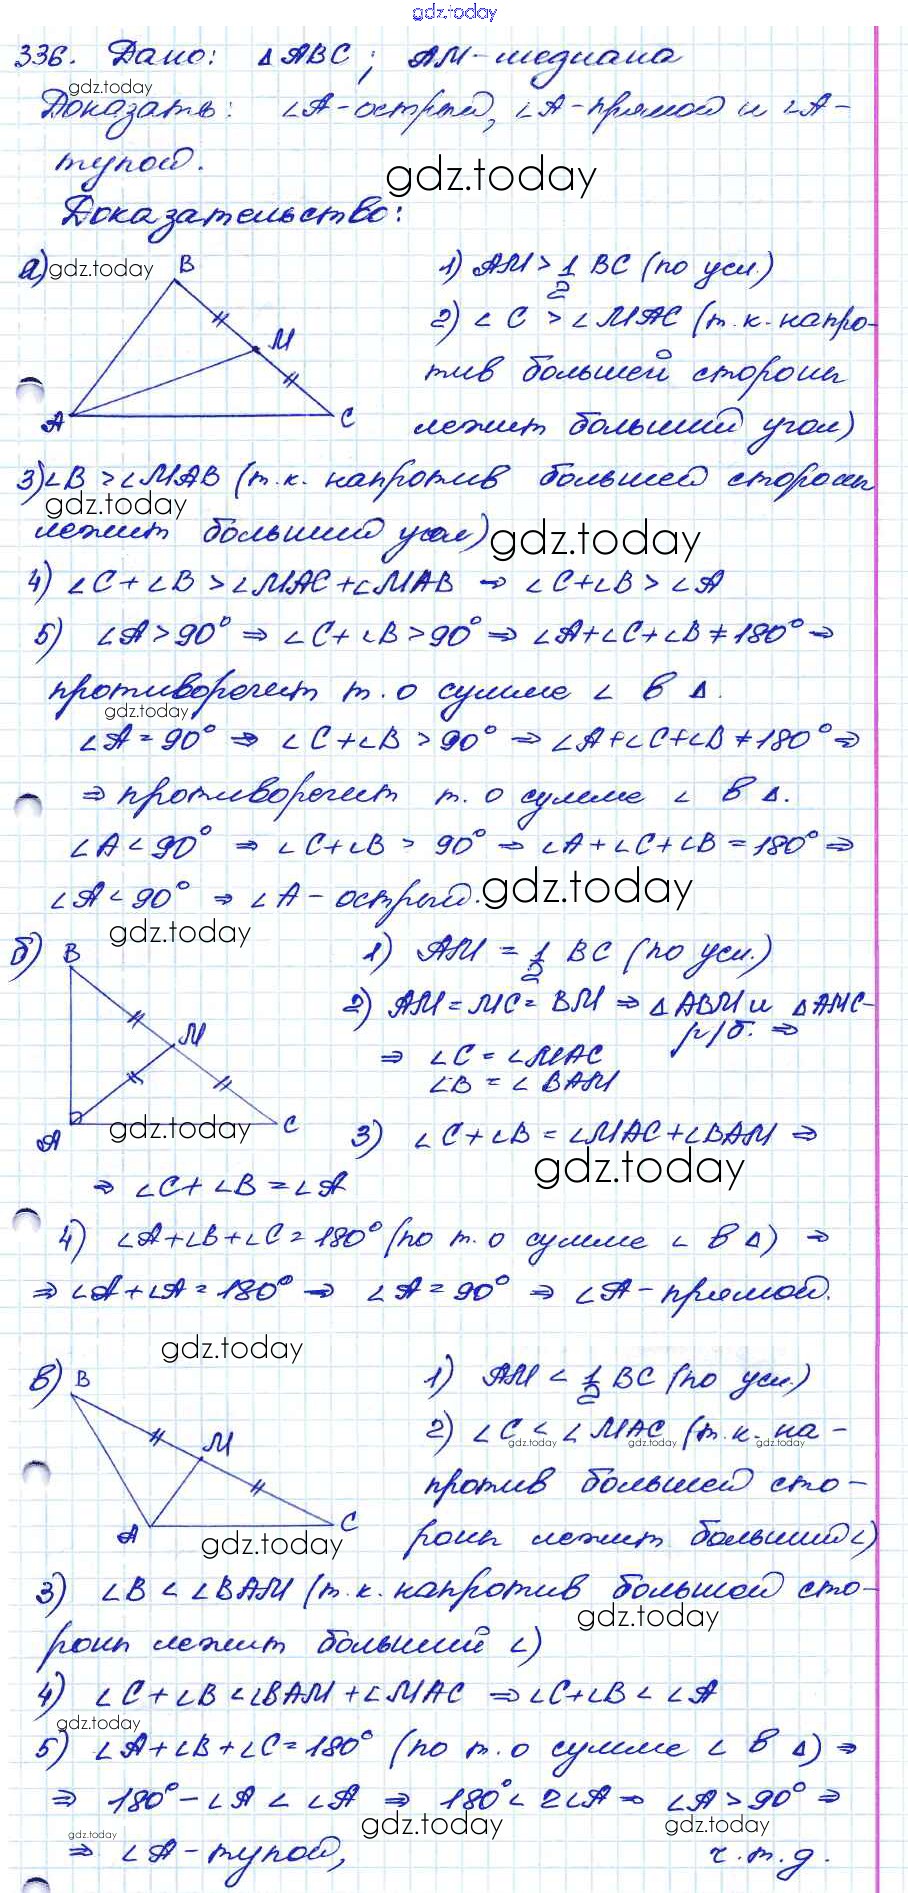 gdz.today
336. Дано: ΔABC; AM-медиана
gdz.today
Доказать: ∠A-острый, ∠A-прямой и ∠A-
тупой.
gdz.today
Доказательство:
а) gdz.today
B
M
A
C
1) AM > 1/2 BC (по усл.)
2) ∠C > ∠MAC (т.к. напро-
тив большей стороны
лежит больший угол)
3) ∠B > ∠MAB (т.к. напротив большей стороны
gdz.today
лежит больший угол)
gdz.today
4) ∠C+∠B > ∠MAC+∠MAB ⇒ ∠C+∠B > ∠A
5) ∠A > 90° ⇒ ∠C+∠B > 90° ⇒ ∠A+∠C+∠B ≠ 180° ⇒
противоречит т. о сумме ∠ в Δ.
gdz.today
∠A = 90° ⇒ ∠C+∠B > 90° ⇒ ∠A+∠C+∠B ≠ 180° ⇒
⇒ противоречит т. о сумме ∠ в Δ.
∠A < 90° ⇒ ∠C+∠B > 90° ⇒ ∠A+∠C+∠B = 180° ⇒
∠A < 90° ⇒ ∠A - острый.
gdz.today
gdz.today
б)
B
M
A
C
gdz.today
1) AM = 1/2 BC (по усл.)
2) AM = MC = BM ⇒ ΔABM и ΔAMC-
р/б. ⇒
⇒ ∠C = ∠MAC
∠B = ∠BAM
3) ∠C+∠B = ∠MAC+∠BAM ⇒
gdz.today
⇒ ∠C+∠B = ∠A
4) ∠A+∠B+∠C = 180° (по т. о сумме ∠ в Δ) ⇒
⇒ ∠A+∠A = 180° ⇒ ∠A = 90° ⇒ ∠A-прямой.
gdz.today
в)
B
M
A
C
gdz.today
1) AM < 1/2 BC (по усл.)
2) ∠C < ∠MAC (т.к. на-
gdz.today gdz.today gdz.today
против большей сто-
роны лежит больший ∠)
3) ∠B < ∠BAM (т.к. напротив большей сто-
gdz.today
роны лежит больший ∠)
4) ∠C+∠B < ∠BAM+∠MAC ⇒ ∠C+∠B < ∠A
gdz.today
5) ∠A+∠B+∠C = 180° (по т. о сумме ∠ в Δ) ⇒
⇒ 180° - ∠A < ∠A ⇒ 180° < 2∠A ⇒ ∠A > 90° ⇒
gdz.today gdz.today gdz.today
⇒ ∠A-тупой, ч.т.д.